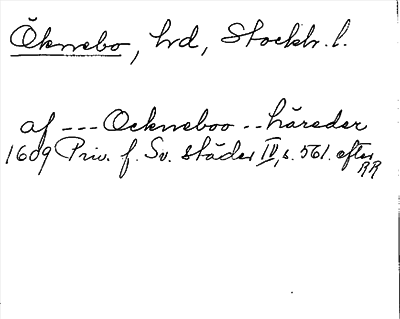 Öknebo, hd, Stockh. l.
af --- Ockneboo -- häreder
1609 Priv. f. Sv. städer IV, s. 561. efter
RR